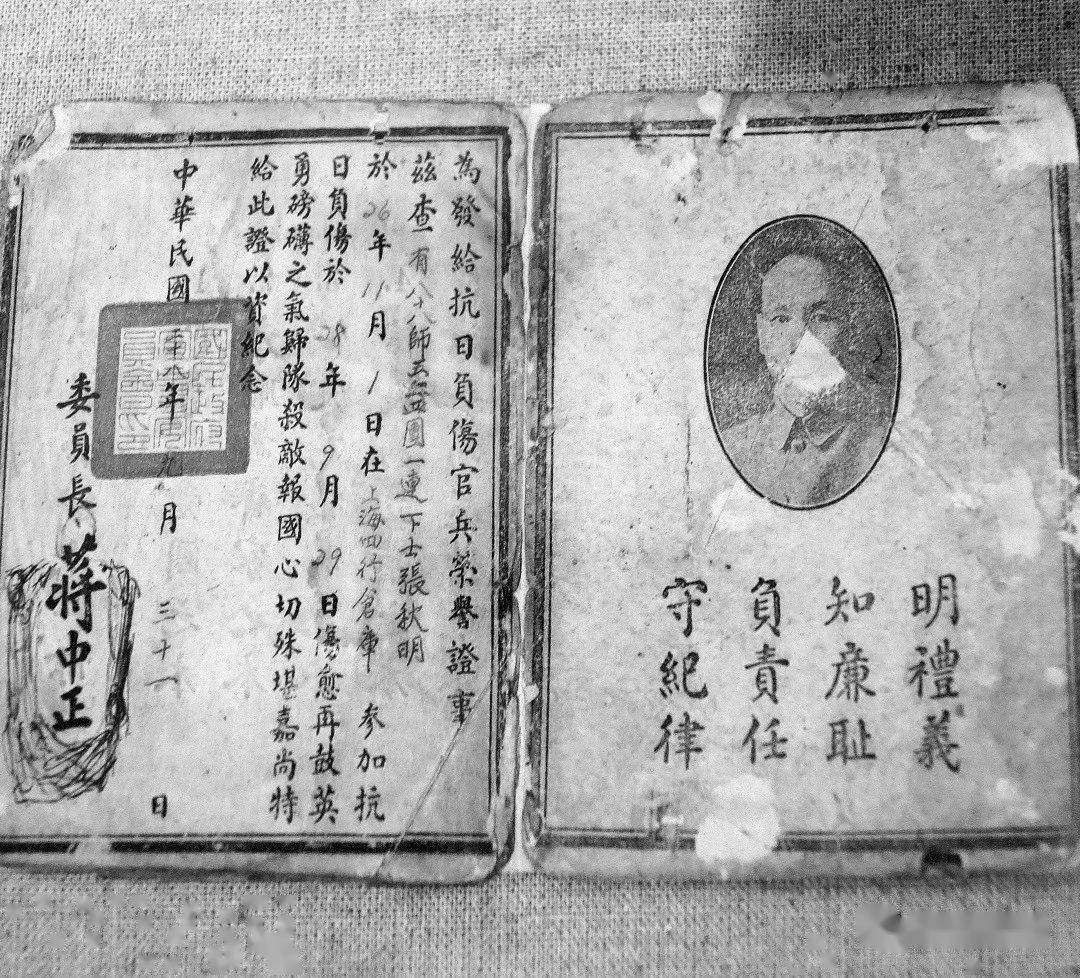 明禮義
知廉耻
負責任
守紀律
為發給抗日負傷官兵榮譽證事
茲查有八十八師五二四團一連下士張秋明
於26年11月1日在上海四行倉庫參加抗
日負傷於28年9月29日傷愈再鼓英
勇磅礴之氣歸隊殺敵報國心切殊堪嘉尚特
給此證以資紀念
中華民國二十八年九月三十一日
委員長蔣中正